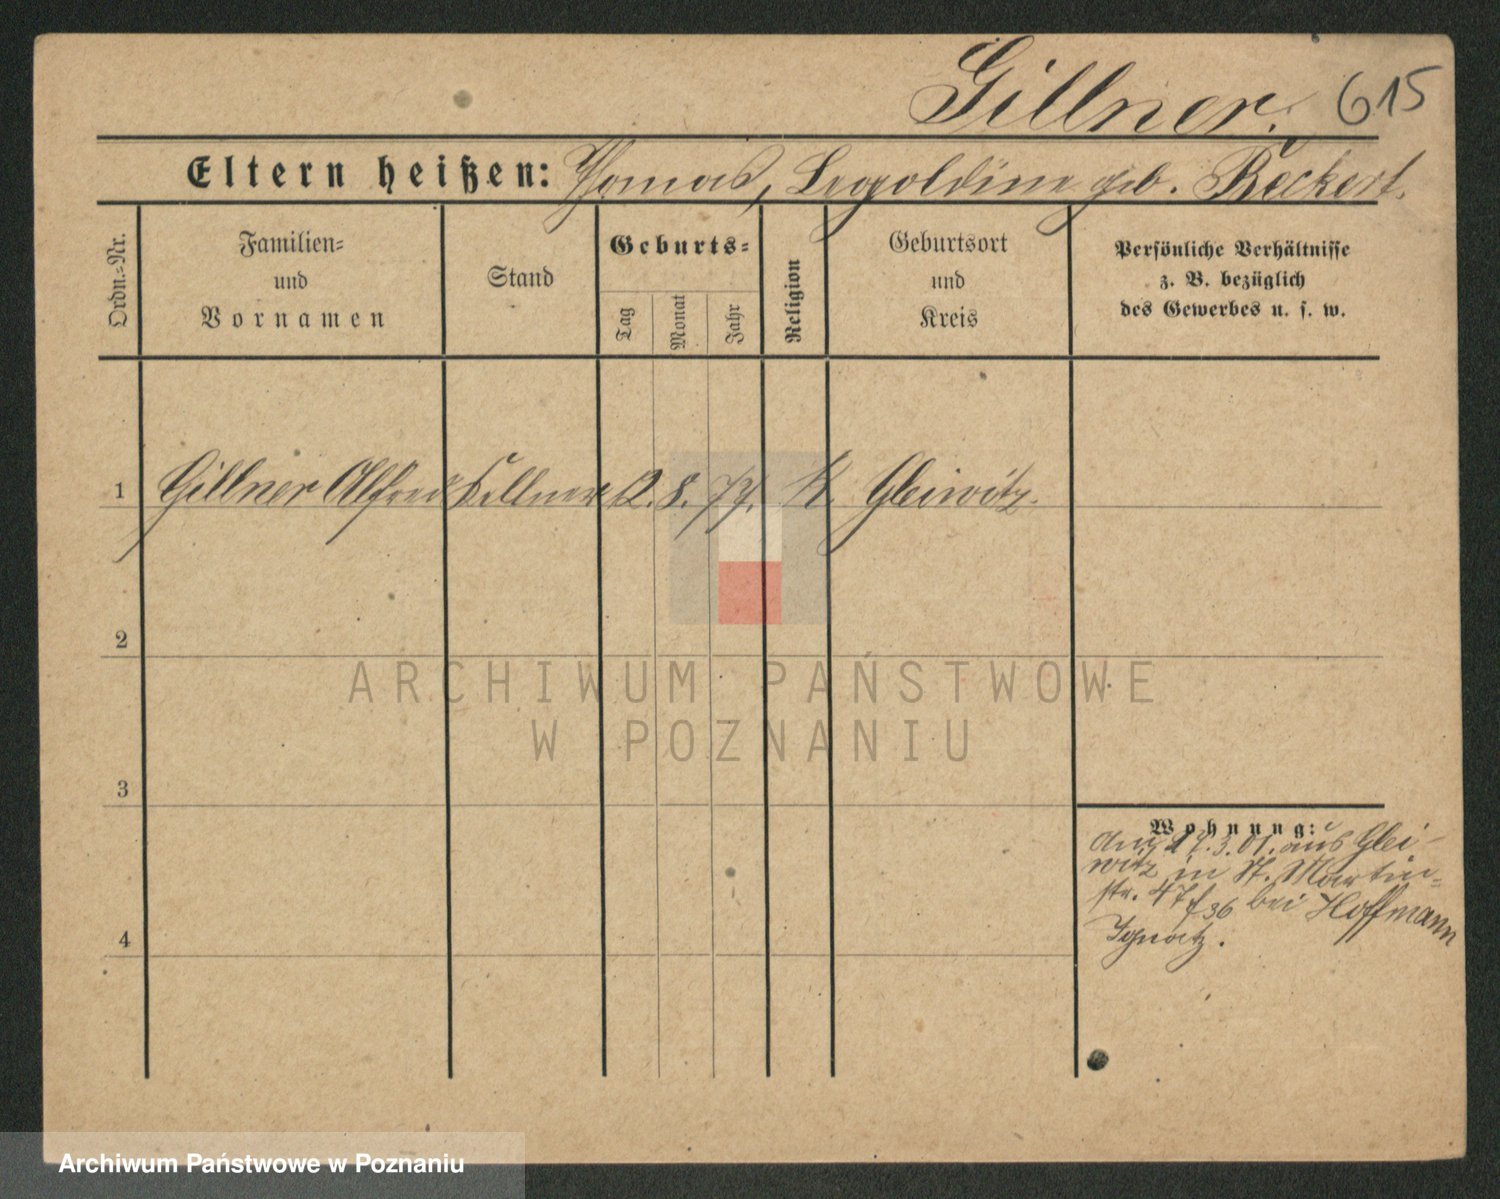 Gillner. 615
Eltern heißen: Thomas, Leopoldine geb. Beckert.
Ordn.-Nr.
Familien-
und
Vornamen
Stand
Geburts-
Tag
Monat
Jahr
Religion
Geburtsort
und
Kreis
Persönliche Verhältnisse
z. B. bezüglich
des Gewerbes u. s. w.
1 Gillner Alfred Kellner 12. 8. 77. K. Gleiwitz.
2
3
4
Wohnung:
3. 01. aus Glei-
witz in St. Martin-
str. 47 bei Hoffmann
Ignatz.
ARCHIWUM PAŃSTWOWE
W POZNANIU
Archiwum Państwowe w Poznaniu